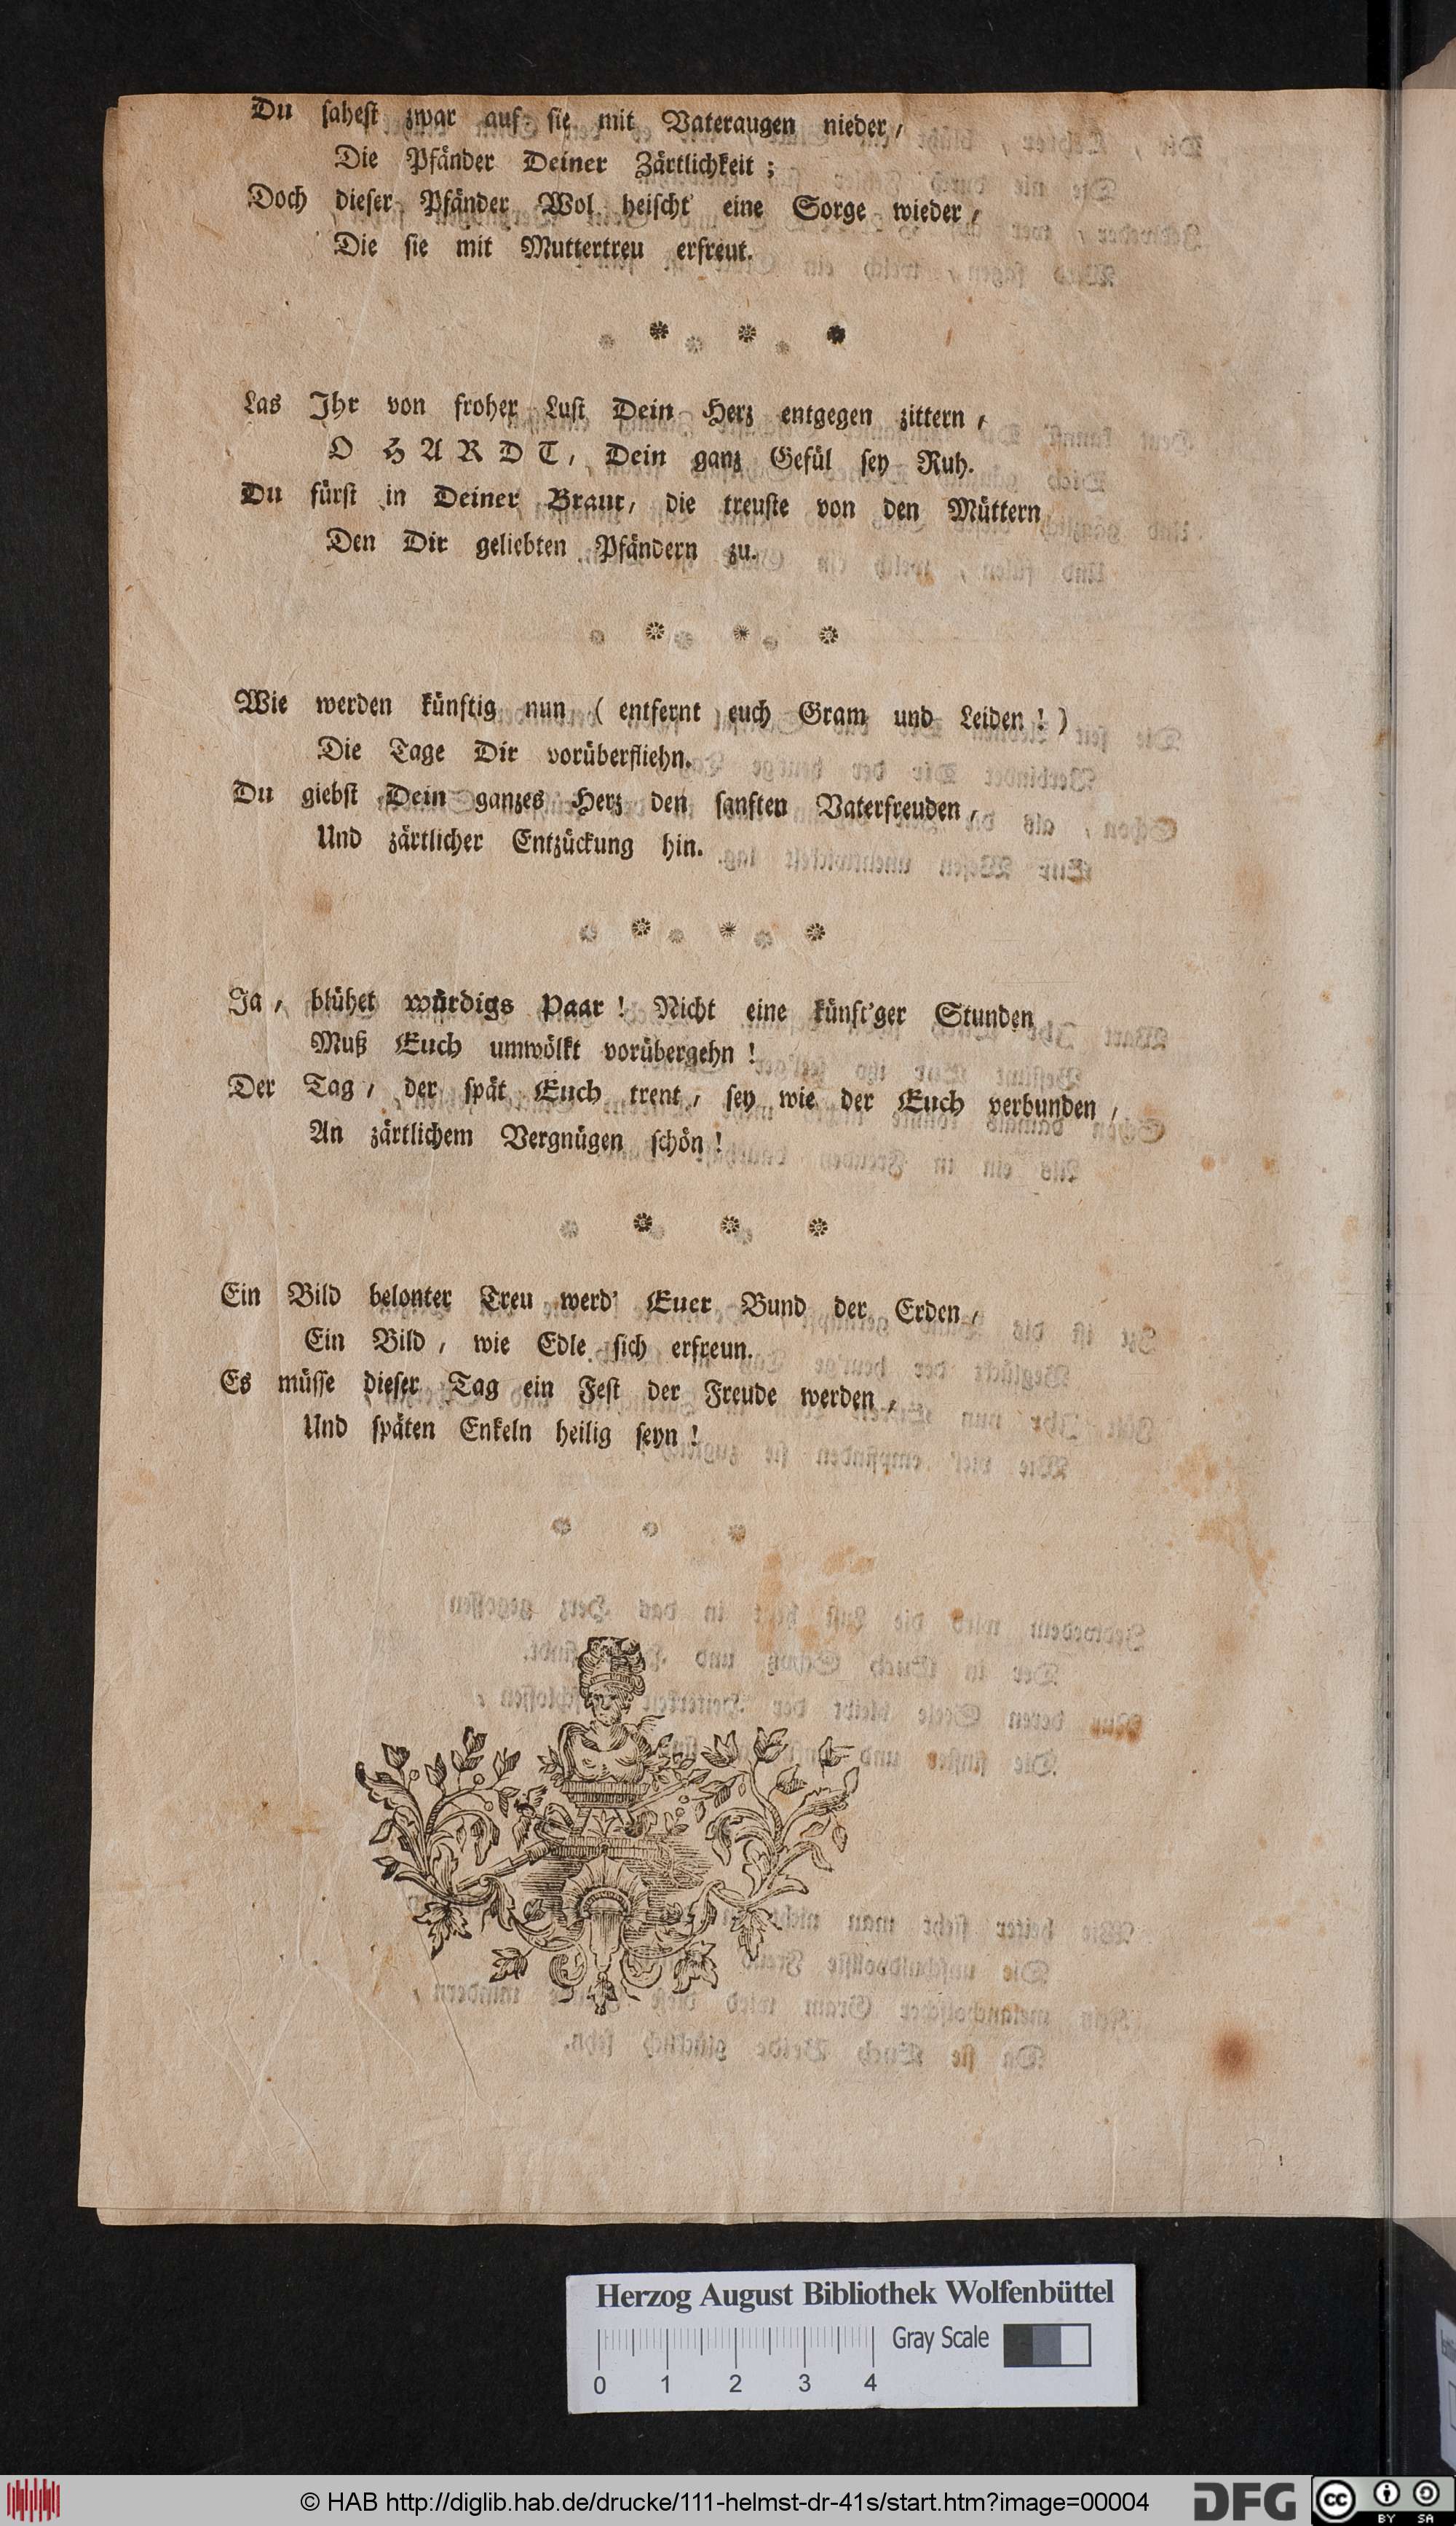 Du ſaheſt zwar auf ſie mit Vateraugen nieder,
Die Pfänder Deiner Zärtlichkeit;
Doch dieſer Pfänder Wol heiſcht eine Sorge wieder,
Die ſie mit Muttertreu erfreut.
* * *
Las Ihr von froher Luſt Dein Herz entgegen zittern,
O HARDT, Dein ganz Gefül ſey Ruh.
Du fürſt in Deiner Braut, die treuſte von den Müttern
Den Dir geliebten Pfändern zu.
* * *
Wie werden künftig nun (entfernt euch Gram und Leiden!)
Die Tage Dir vorüberfliehn.
Du giebſt Dein ganzes Herz den ſanften Vaterfreuden,
Und zärtlicher Entzückung hin.
* * *
Ja, blühet würdigs Paar! Nicht eine künft'ger Stunden
Muß Euch umwölkt vorübergehn!
Der Tag, der ſpät Euch trent, ſey wie der Euch verbunden,
An zärtlichem Vergnügen ſchön!
* * *
Ein Bild belonter Treu werd' Euer Bund der Erden,
Ein Bild, wie Edle ſich erfreun.
Es müſſe dieſer Tag ein Feſt der Freude werden,
Und ſpäten Enkeln heilig ſeyn!
Herzog August Bibliothek Wolfenbüttel
Gray Scale
0 1 2 3 4
© HAB http://diglib.hab.de/drucke/111-helmst-dr-41s/start.htm?image=00004
DFG
cc BY SA